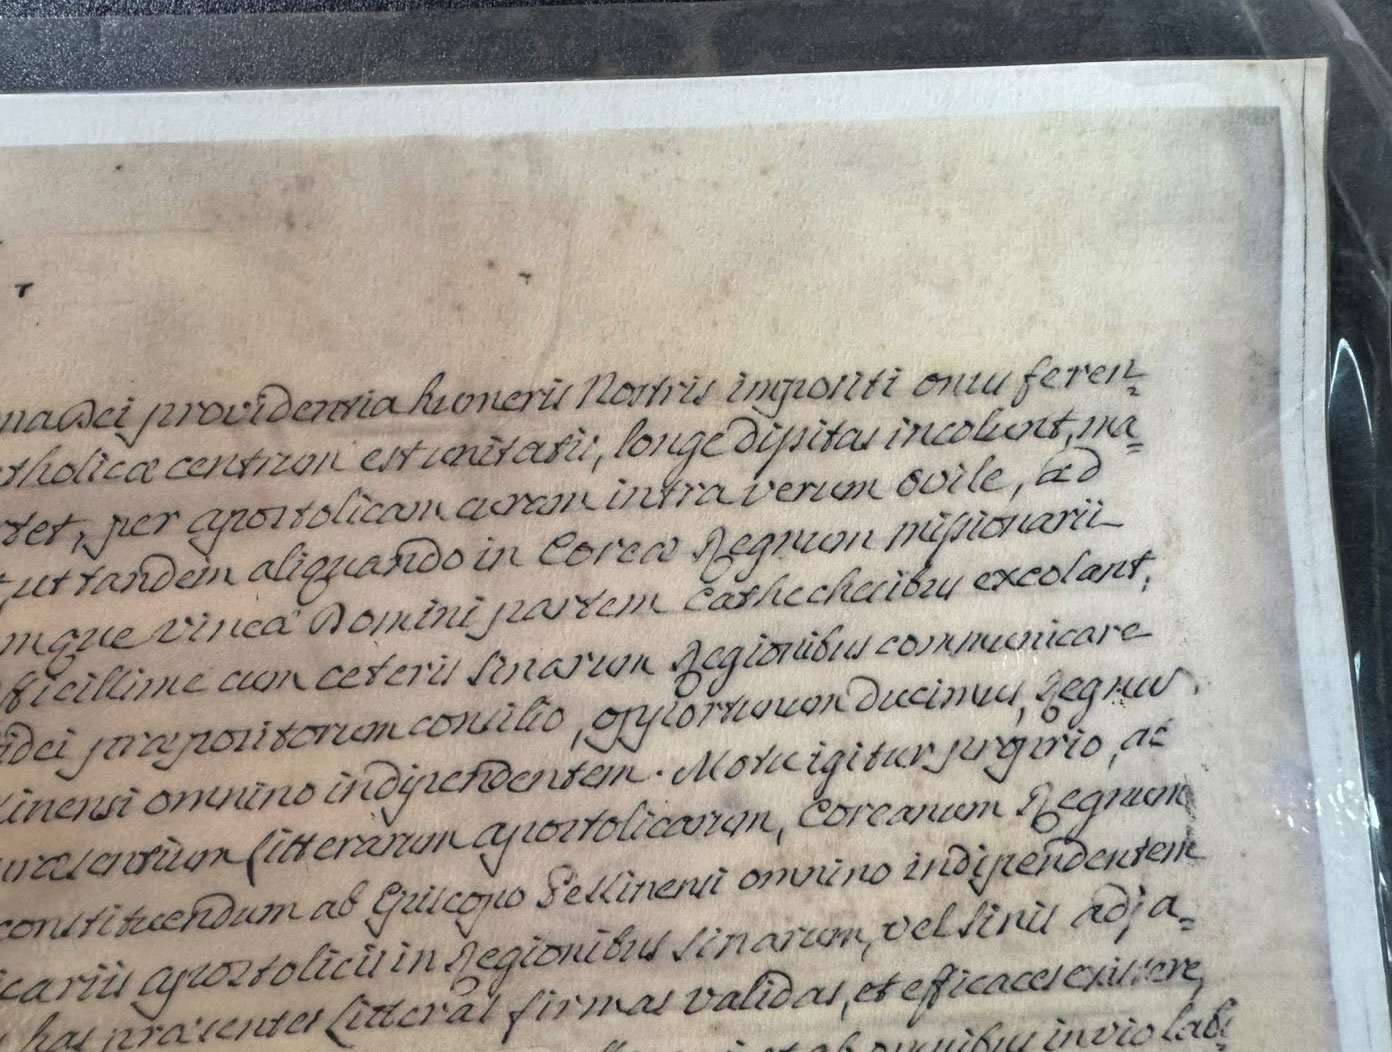 na Dei providentia humeris Nostris impositi onus feren=
tholicæ centrum est unitatis, longe dissitas incolunt, ma=
tet, per apostolicam curam intra verum ovile, ad
ut tandem aliquando in Coreæ Regnum missionarii
mque vineæ Domini partem Cathechesibus excolant,
fficillime cum ceteris Sinarum Regionibus communicare
idei præpositorum consilio, opportunum ducimus, Regnus
inensi omnino indipendentem. Motu igitur proprio, ac
præsentium Litterarum apostolicarum, Coreanum Regnum
constituendum ab Episcopo Pekinensi omnino indipendentem
icariis apostolicis in Regionibus Sinarum, vel Sinis adja=
has præsentes Litteras firmas validas, et efficaces existere,
et ab omnibus inviolabi=